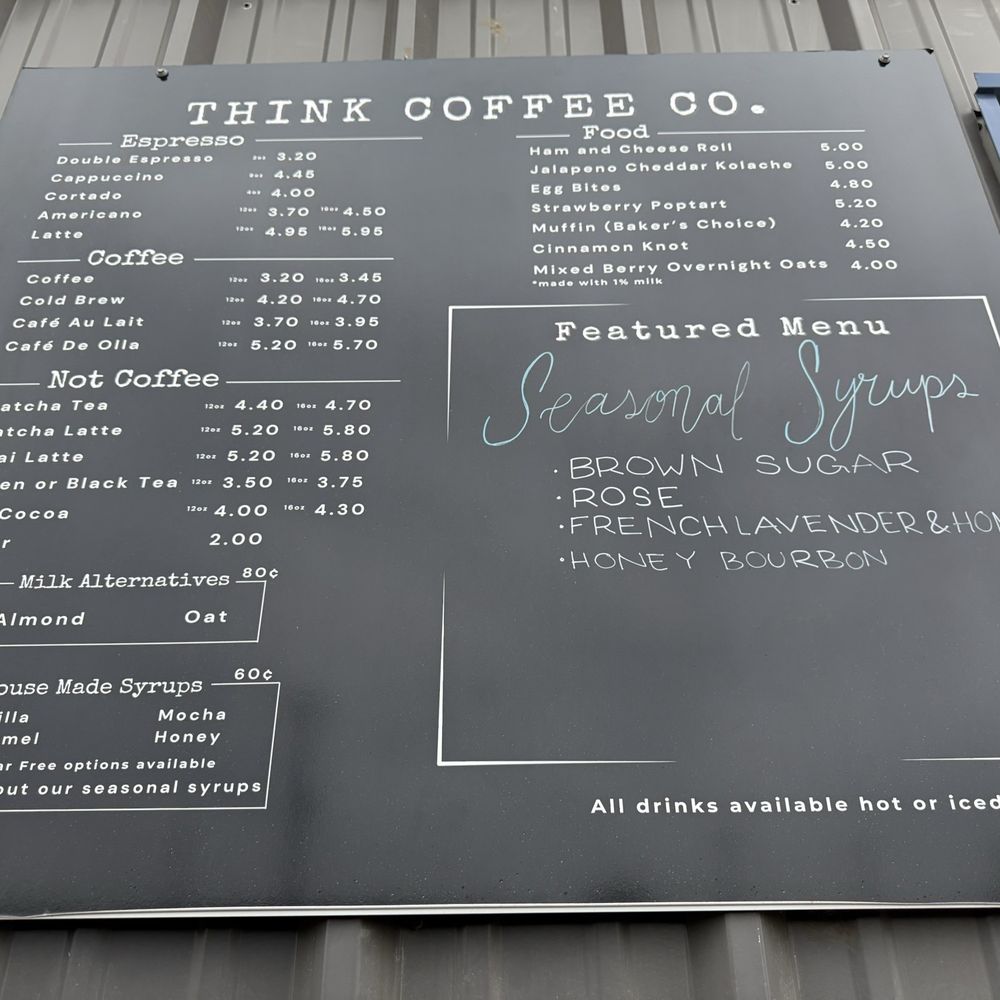 THINK COFFEE CO.
Espresso
Double Espresso 2oz 3.20
Cappuccino 8oz 4.45
Cortado 4oz 4.00
Americano 12oz 3.70 16oz 4.50
Latte 12oz 4.95 16oz 5.95
Coffee
Coffee 12oz 3.20 16oz 3.45
Cold Brew 12oz 4.20 16oz 4.70
Café Au Lait 12oz 3.70 16oz 3.95
Café De Olla 12oz 5.20 16oz 5.70
Not Coffee
atcha Tea 12oz 4.40 16oz 4.70
atcha Latte 12oz 5.20 16oz 5.80
ai Latte 12oz 5.20 16oz 5.80
en or Black Tea 12oz 3.50 16oz 3.75
Cocoa 12oz 4.00 16oz 4.30
r 2.00
Milk Alternatives 80¢
Almond Oat
ouse Made Syrups 60¢
illa Mocha
mel Honey
ar Free options available
out our seasonal syrups
Food
Ham and Cheese Roll 5.00
Jalapeno Cheddar Kolache 5.00
Egg Bites 4.80
Strawberry Poptart 5.20
Muffin (Baker's Choice) 4.20
Cinnamon Knot 4.50
Mixed Berry Overnight Oats 4.00
*made with 1% milk
Featured Menu
Seasonal Syrups
· BROWN SUGAR
· ROSE
· FRENCH LAVENDER & HON
· HONEY BOURBON
All drinks available hot or iced